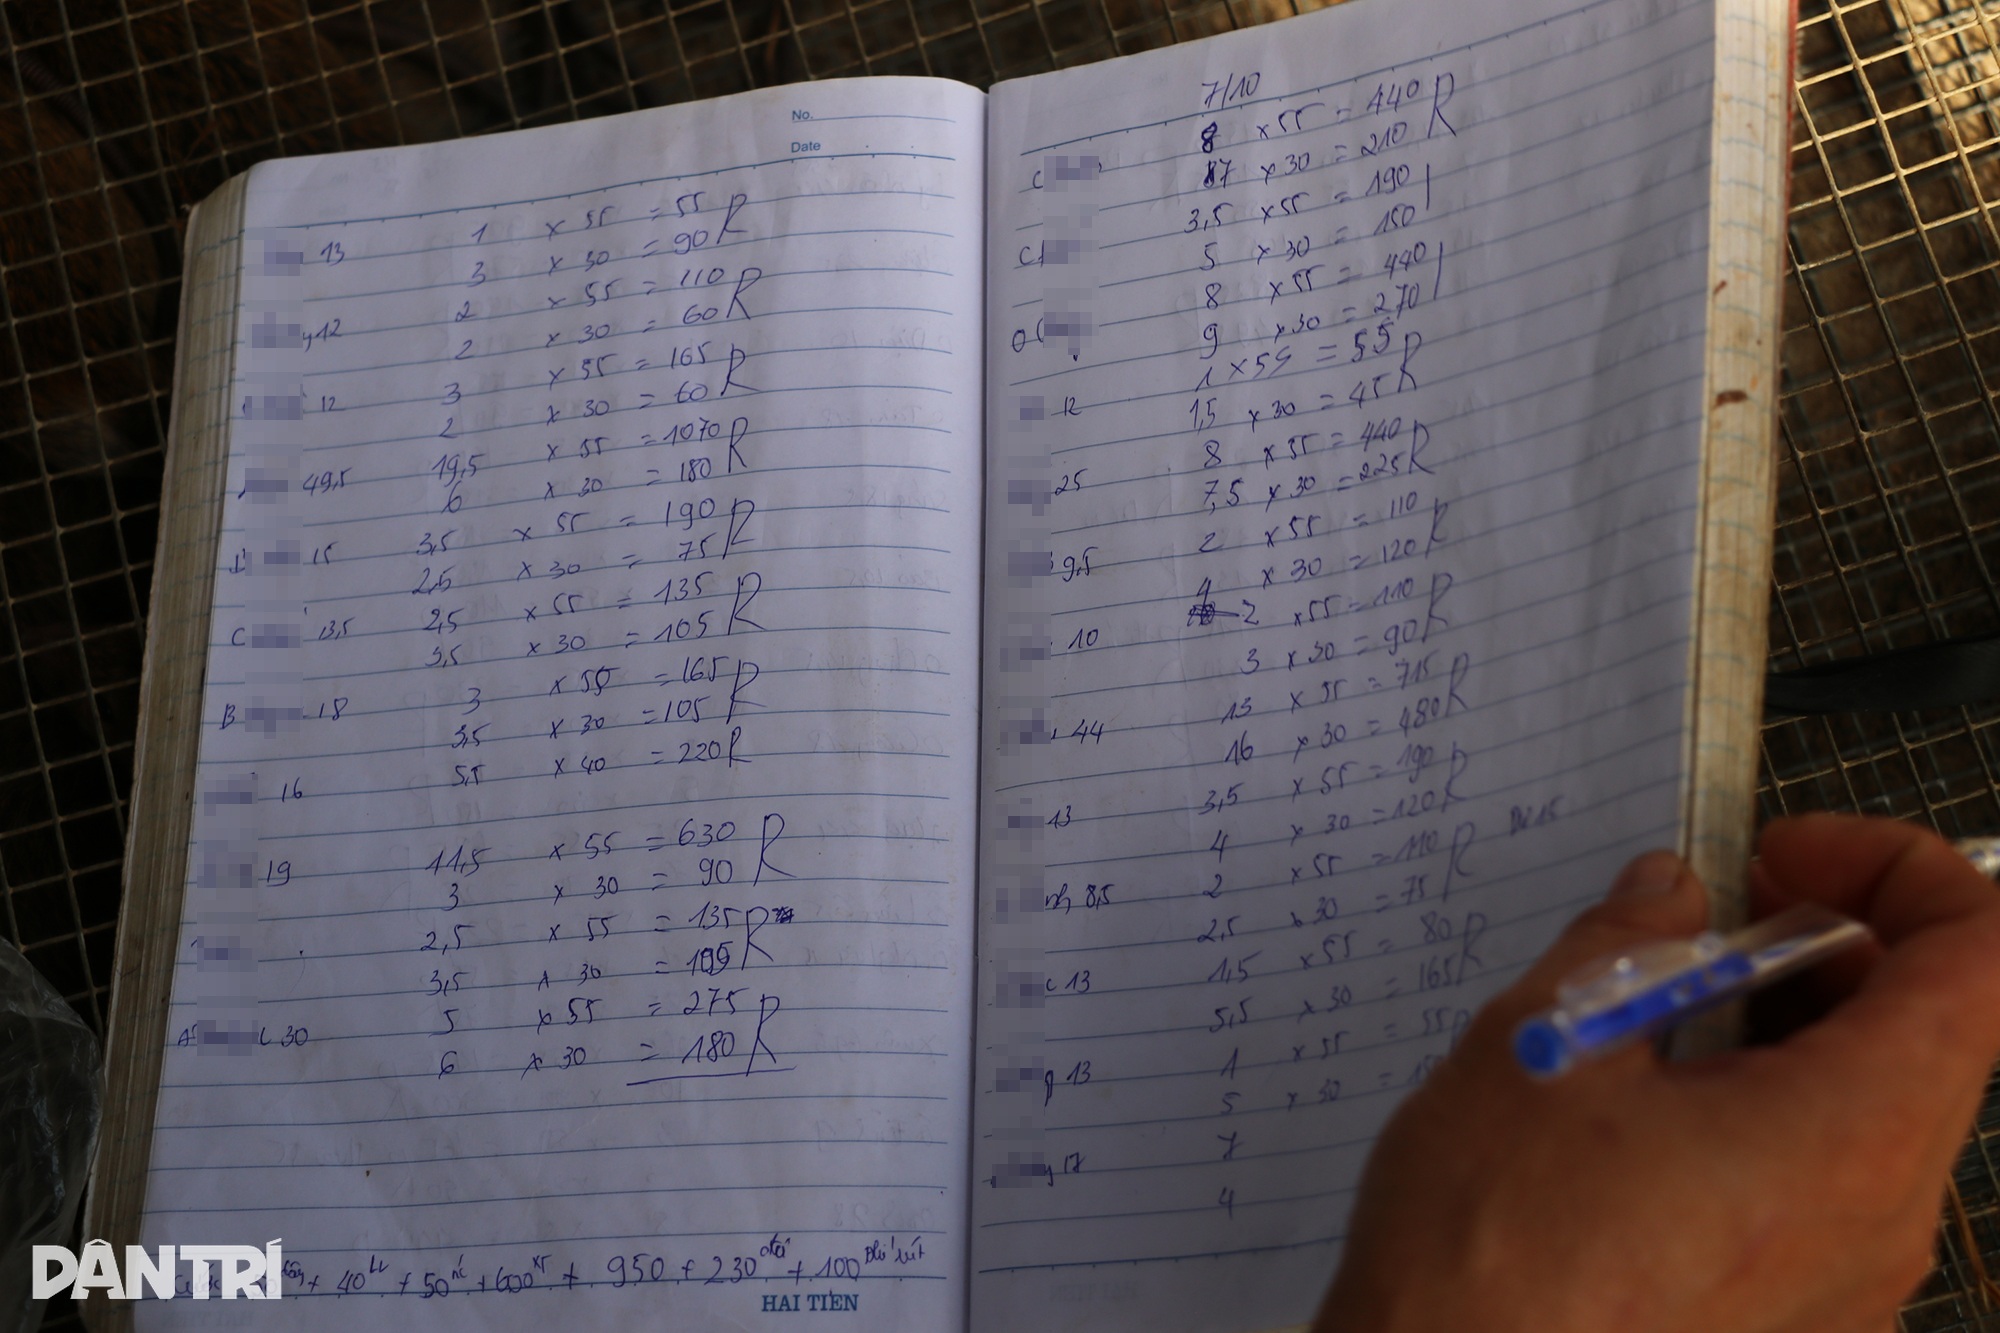 No.
Date
13 1 × 55 = 55 R
3 × 30 = 90
12 2 × 55 = 110 R
2 × 30 = 60
12 3 × 55 = 165 R
2 × 30 = 60
49,5 19,5 × 55 = 1070 R
6 × 30 = 180
15 3,5 × 55 = 190 R
2,5 × 30 = 75
C 13,5 2,5 × 55 = 135 R
3,5 × 30 = 105
B 18 3 × 55 = 165 R
3,5 × 30 = 105
16 5,5 × 40 = 220 R
19 11,5 × 55 = 630 R
3 × 30 = 90
2,5 × 55 = 135 R
3,5 × 30 = 105
A 30 5 × 55 = 275 R
6 × 30 = 180
+ 40 + 50 + 600 + 950 + 230 + 100
HAI TIEN
DÂN TRÍ
7/10
C 8 × 55 = 440 R
7 × 30 = 210
C 3,5 × 55 = 190
5 × 30 = 150
O 8 × 55 = 440
9 × 30 = 270
12 1 × 55 = 55 R
1,5 × 30 = 45
25 8 × 55 = 440 R
7,5 × 30 = 225
9,5 2 × 55 = 110 R
4 × 30 = 120
10 2 × 55 = 110 R
3 × 30 = 90
44 13 × 55 = 715 R
16 × 30 = 480
13 3,5 × 55 = 190 R
4 × 30 = 120
8,5 2 × 55 = 110 R
2,5 × 30 = 75
13 1,5 × 55 = 80 R
5,5 × 30 = 165
13 1 × 55 = 55
5 × 30 =
17 7
4